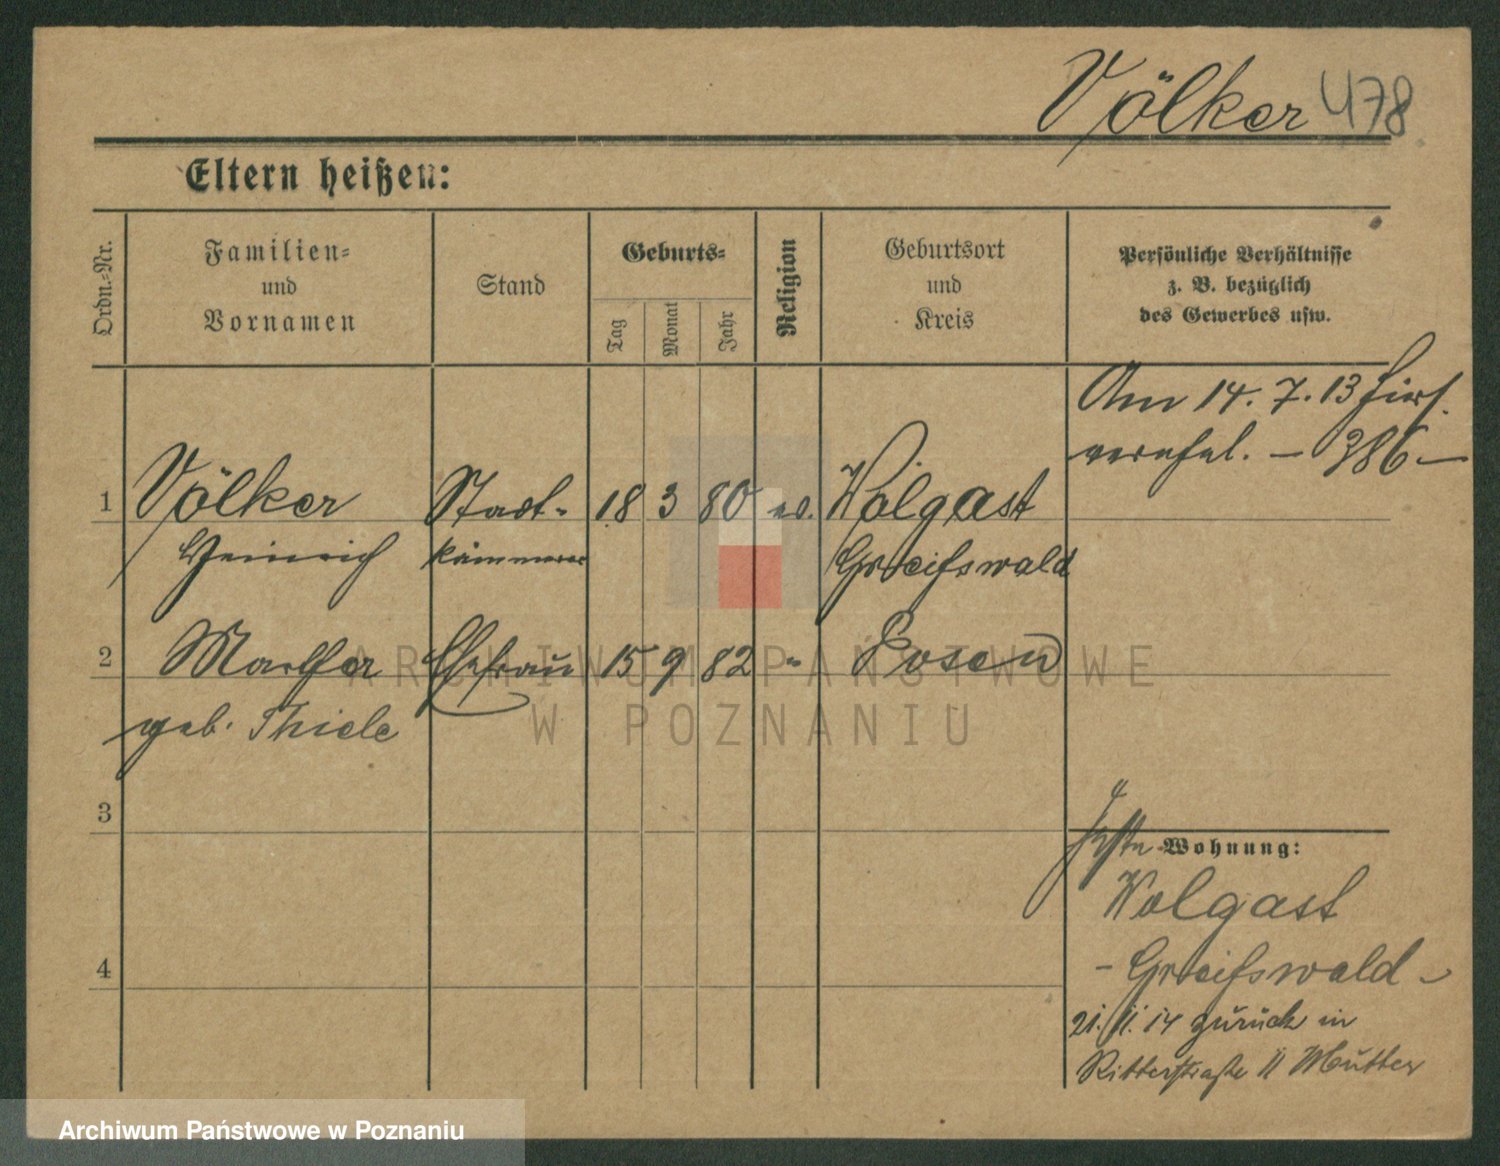 Völker 478
Eltern heißen:
Ordn.-Nr.
Familien-
und
Vornamen
Stand
Geburts-
Tag
Monat
Jahr
Religion
Geburtsort
und
Kreis
Persönliche Verhältnisse
z. B. bezüglich
des Gewerbes usw.
Am 14. 7. 13 hier
verehel. – 386 –
1 Völker Stadt- 18 3 80 ev. Wolgast
Heinrich kämmerer Greifswald
2 Martha Ehefrau 15 9 82 " Posen
geb. Thiele
3
Wohnung:
Wolgast
4
- Greifswald -
21. 11. 14 zurück in
Ritterstraße 11 Mutter
ARCHIWUM PAŃSTWOWE
W POZNANIU
Archiwum Państwowe w Poznaniu